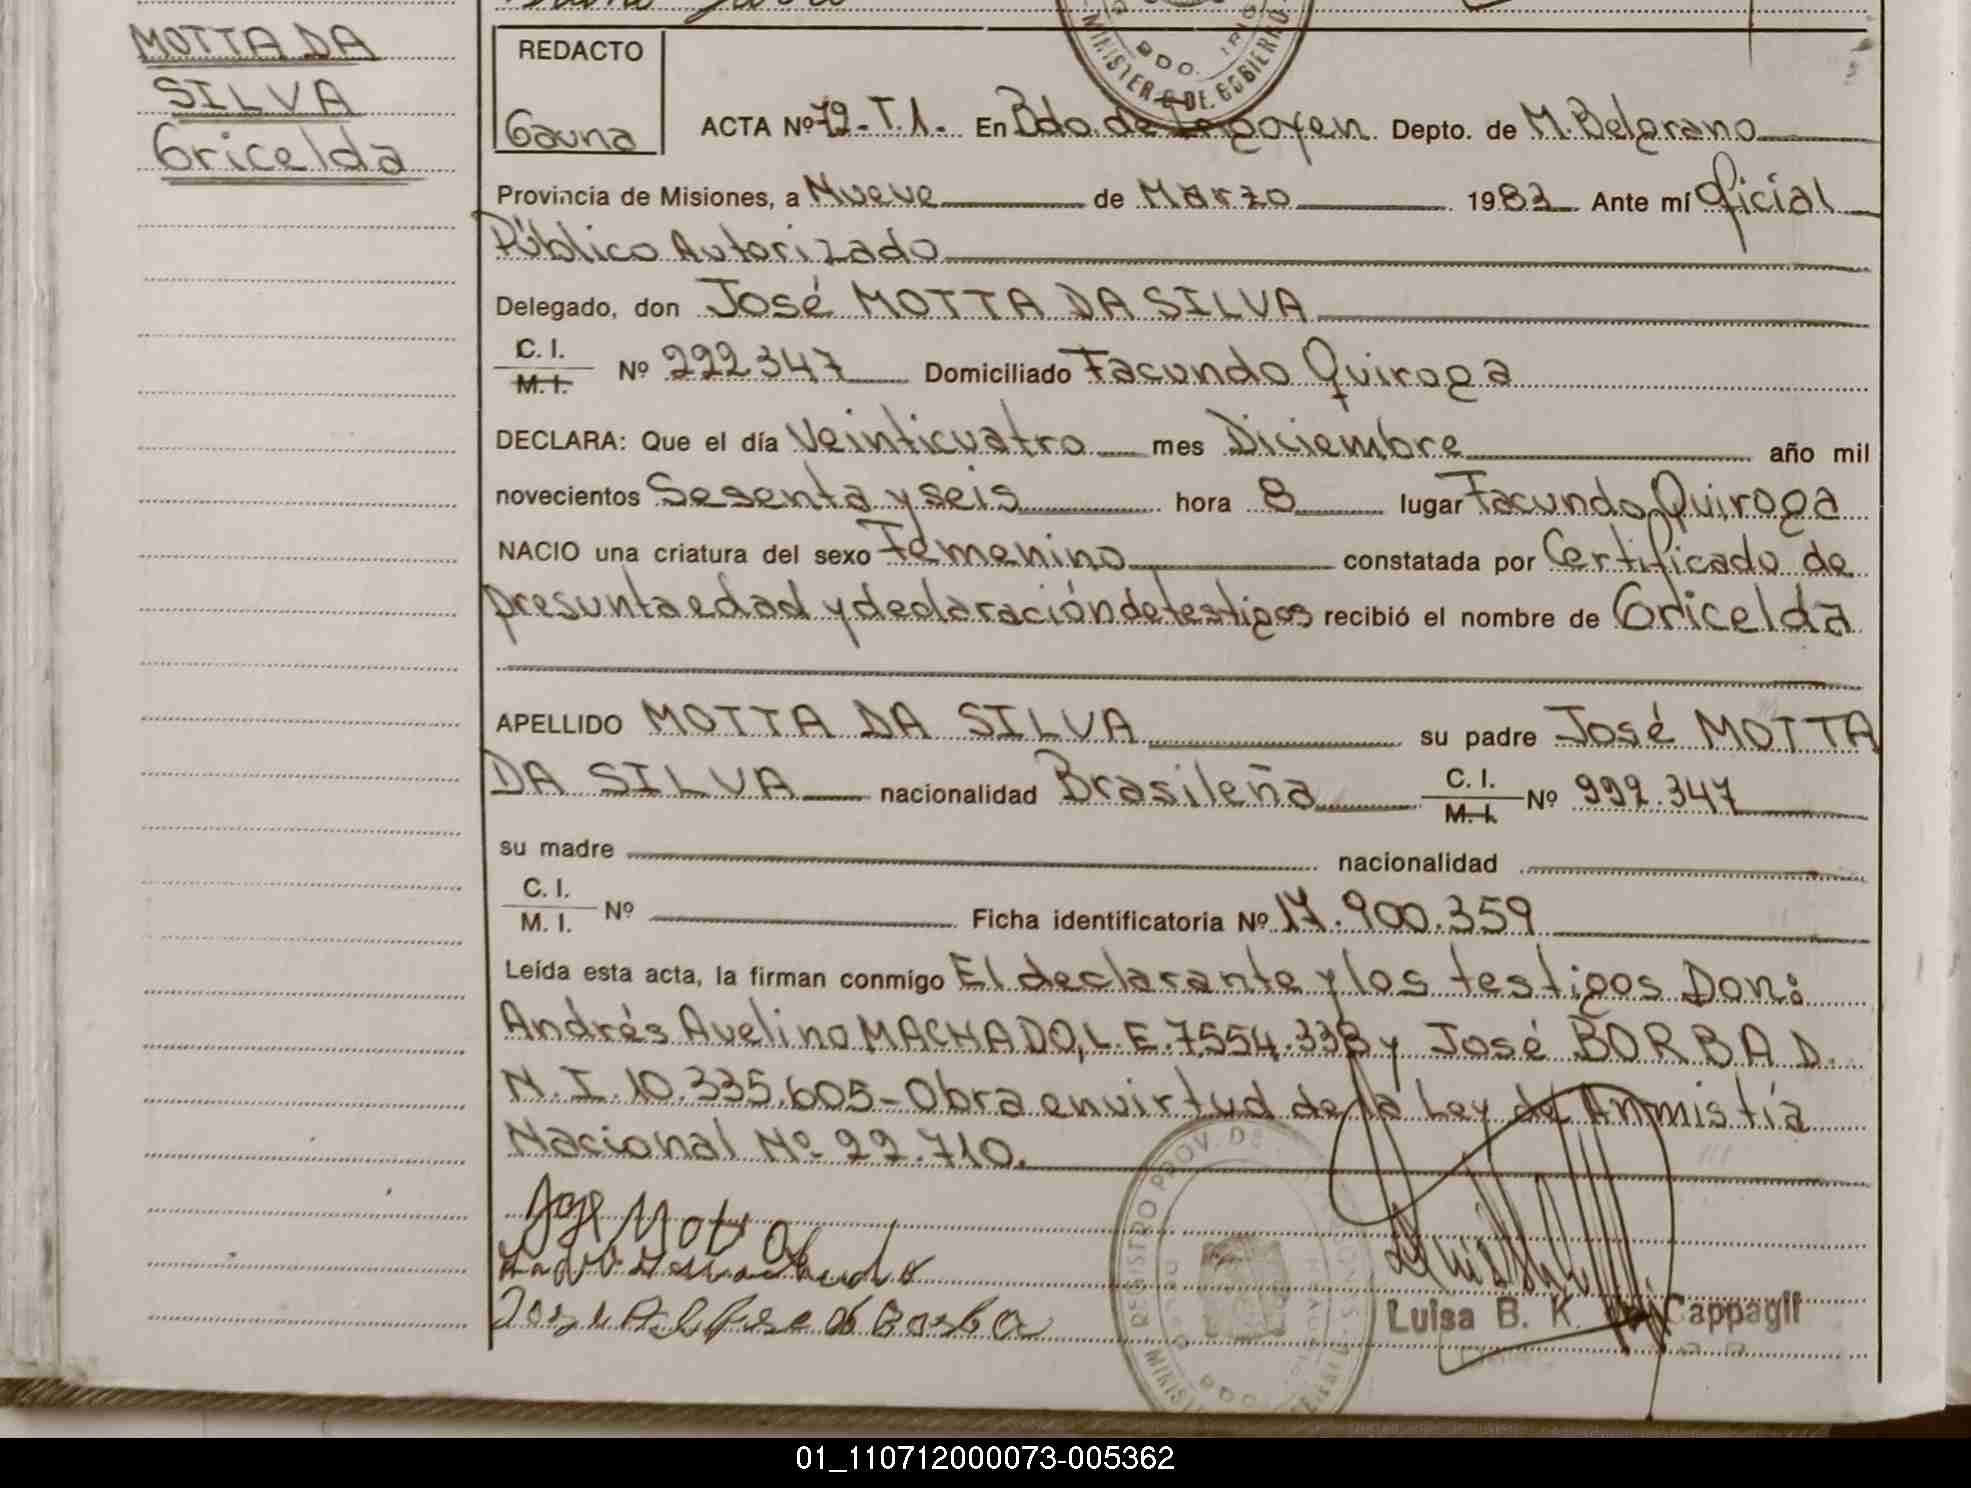 MOTTA DA
SILVA
Gricelda
MINISTER DE GOBIERN
BDO. IRIG
REDACTO
Gauna
ACTA Nº 72-T.1. En Bdo. de Irigoyen Depto. de M. Belgrano
Provincia de Misiones, a Nueve de Marzo 1983 Ante mí Oficial
Público Autorizado
Delegado, don José MOTTA DA SILVA
C. I.
M. I. Nº 222347 Domiciliado Facundo Quiroga
DECLARA: Que el día Veinticuatro mes Diciembre año mil
novecientos Sesenta y seis hora 8 lugar Facundo Quiroga
NACIO una criatura del sexo Femenino constatada por Certificado de
presunta edad y declaración de testigos recibió el nombre de Gricelda
APELLIDO MOTTA DA SILVA su padre José MOTTA
DA SILVA nacionalidad Brasileña C. I. M. I. Nº 222.347
su madre nacionalidad
C. I.
M. I. Nº Ficha identificatoria Nº 17.900.359
Leída esta acta, la firman conmigo El declarante y los testigos Don:
Andrés Avelino MACHADO, L.E. 7.554.338 y José BORBA D.
N.I. 10.335.605 - Obra en virtud de la Ley de Anmistía
Nacional Nº 22.710.
José Mota
Machado
Borba
REGISTRO PROV. DE
Luisa B. K. Cappagli
01_110712000073-005362